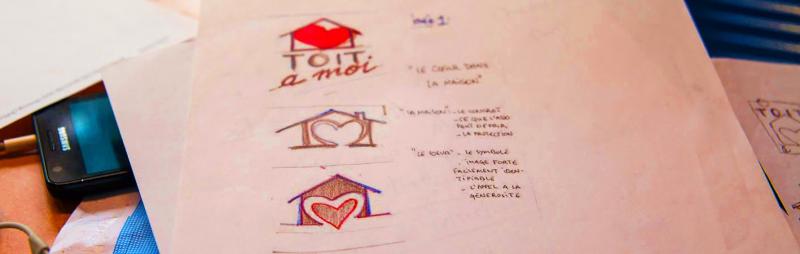 TOIT
a moi
idée 1:
"LE CŒUR DANS
LA MAISON"
"LA MAISON" - LE CONCRET
- CE QUE L'ASSO
- LA PROTECTION
"LE CŒUR" - LE SYMBOLE
- IMAGE FORTE
FACILEMENT IDEN-
TIFIABLE
- L'APPEL A LA
GÉNÉROSITÉ
SAMSUNG
TOIT